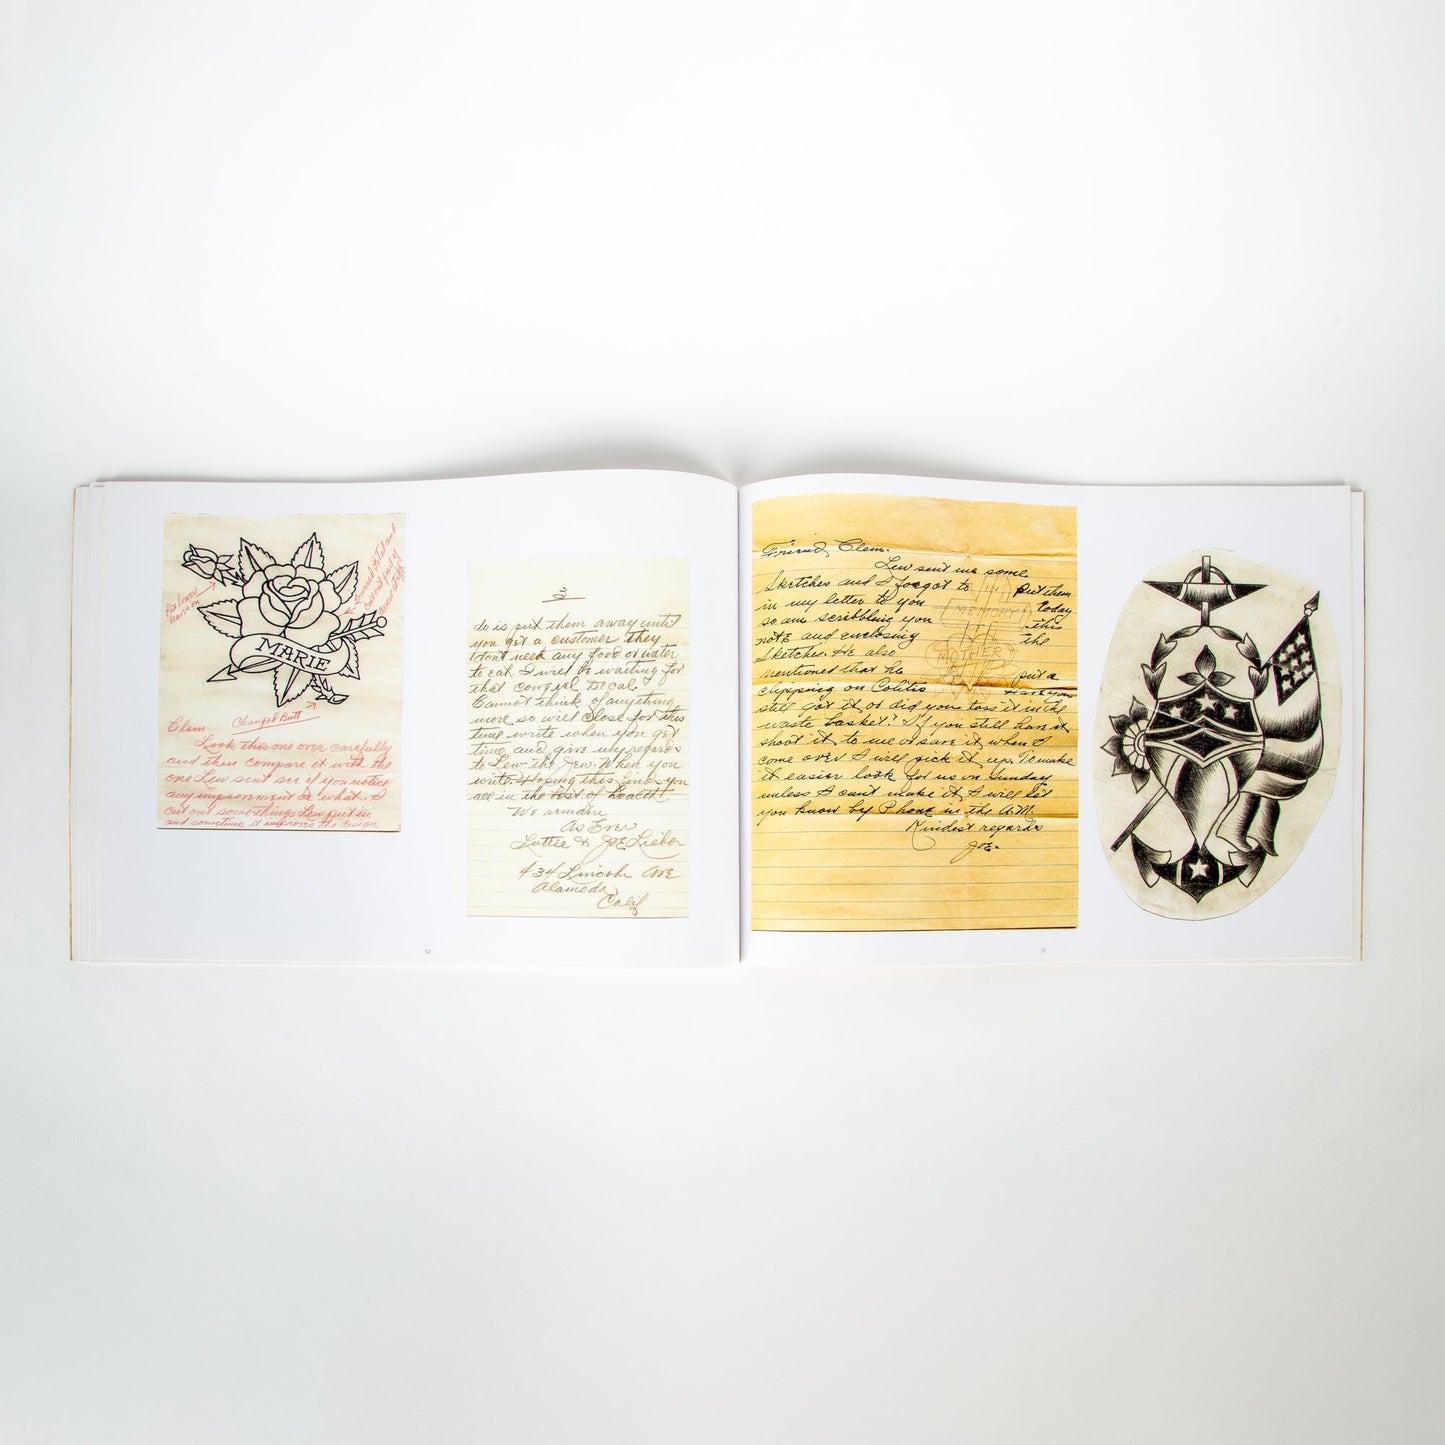 MARIE
Changed Butt
Clem
Look this one over carefully
and then compare it with the
one Lew sent see if you notice
any improvment or what. I
cut out some things Lew put in
and sometime it improvs the design
2
do is put them away until
you get a customer they
dont need any food or water
to eat. I will be waiting for
that Cowgirl Decal.
Cannot think of anything
more so will close for this
time write when you get
time and give my regards
to Lew the Jew. When you
write. Hoping this finds you
all in the best of health!
We remain
As Ever
Lottie & Joe Lieber
434 Lincoln Ave
Alameda,
Calif
50
Friend Clem.
Lew sent me some
Sketches and I forgot to put them
in my letter to you today
so am scribbling you this
note and enclosing the
Sketches. He also
mentioned that he put a
clipping on Colitis Have you
still got it or did you toss it in the
waste basket? If you still have it
shoot it to me or save it when I
come over I will pick it up. To make
it easier look for us on Sunday
unless I cant make it, I will let
you know by Phone in the A.M.
Kindest regards
Joe.
IN
MEMORY
OF
MOTHER
51